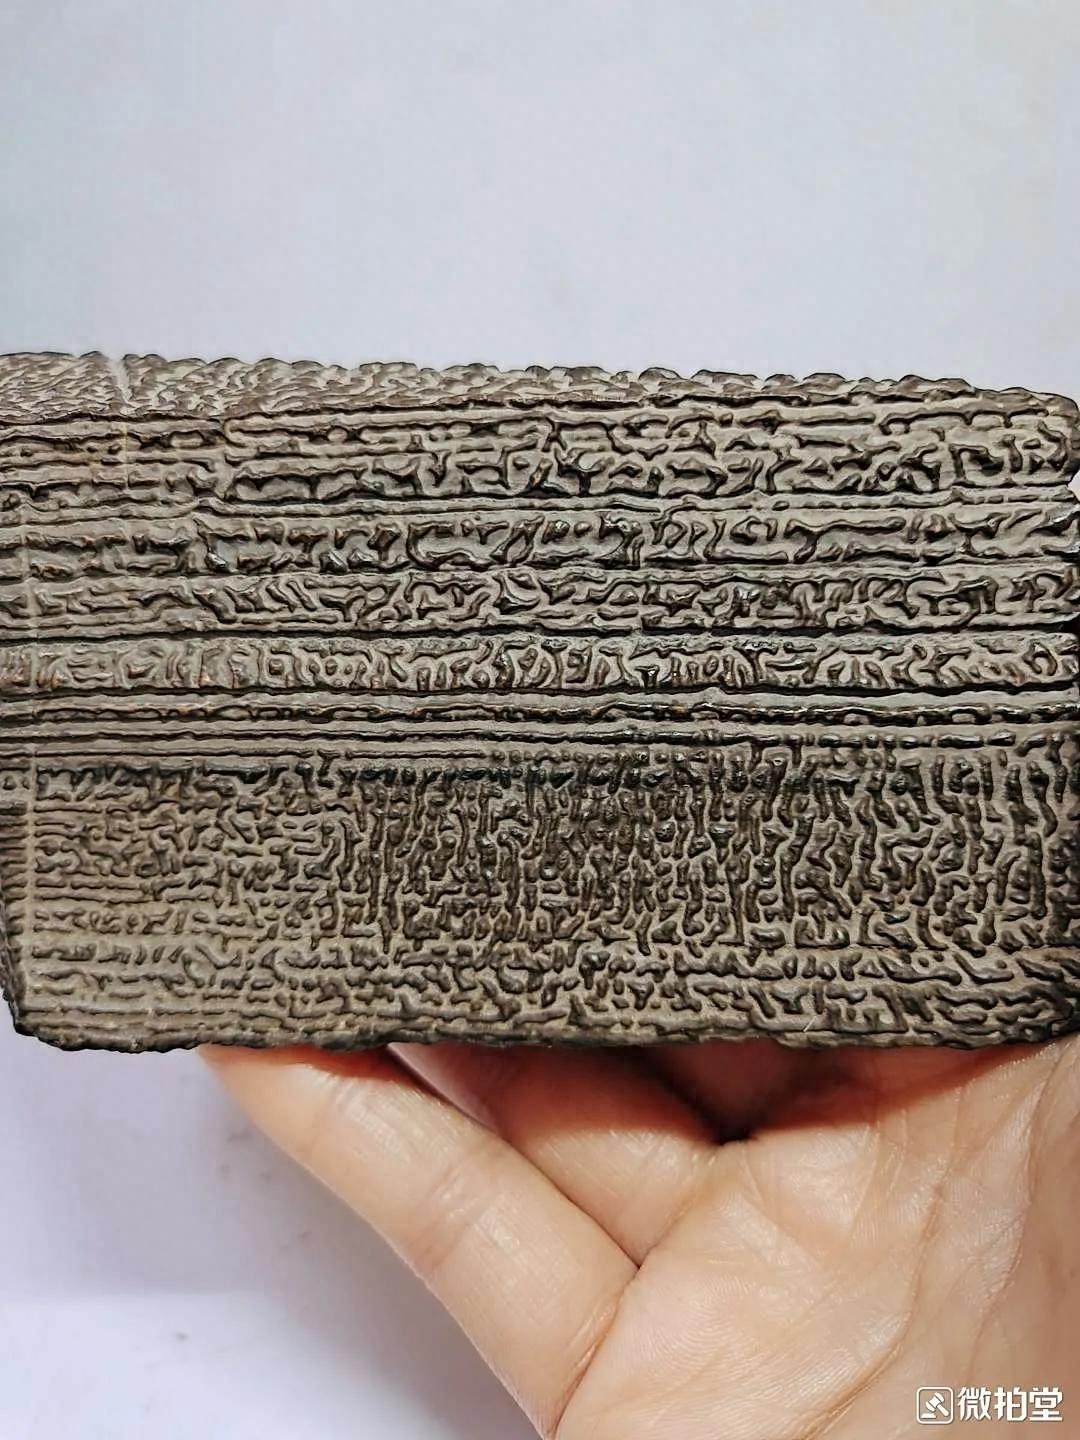 微拍堂